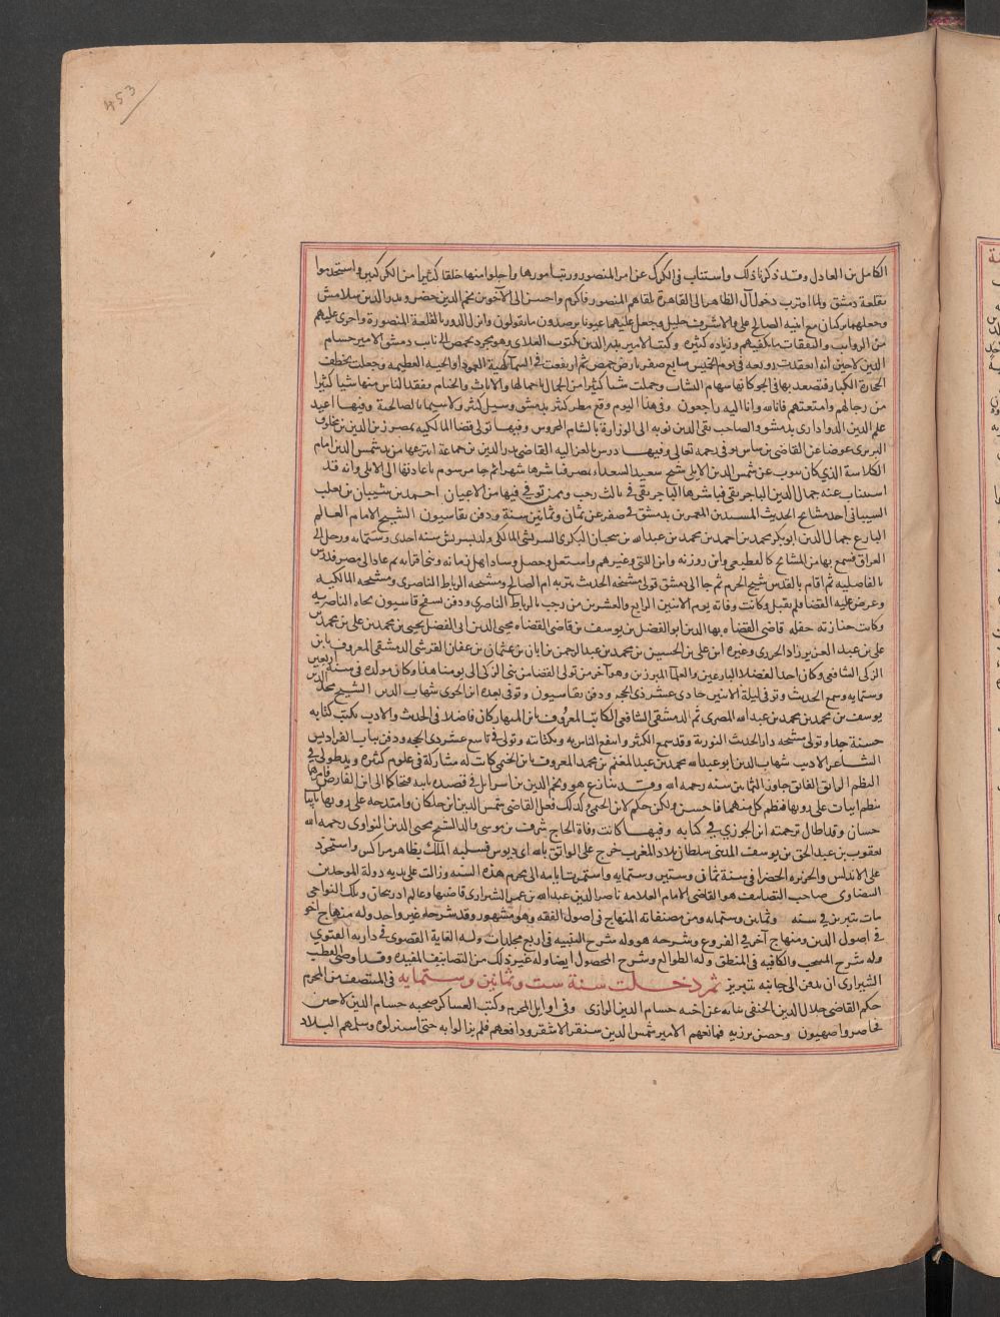 453
الكامل بن العادل وقد ذكرنا ذلك واستناب في الكرك عن امر المنصور ورتب امورها واجلوا منها خلقا كثيرا من الكركيين واستخدموا
بقلعة دمشق ولما اقترب دخول آل الظاهر الى القاهرة تلقاهم المنصور فاكرم واحسن الى الآخوين نجم الدين خضر وبدر الدين سلامش
وجعلهما يركبان مع ابنيه الصالح علي والاشرف خليل وجعل عليهما عيونا يرصدون ما يقولون وانزل الدور بالقلعة المنصورة واجرى عليهم
من الرواتب والنفقات ما يكفيهم وزياده كثيره وكتب الامير بدر الدين بكتوت العلاي وهو مجرد بحمص الى نايب دمشق الامير حسام
الدين لاجين انه انعقدت زوبعه في يوم الخميس سابع صفر بارض حمص ثم ارتفعت في السما كهيئة العمود او الحيه العظيمه وجعلت تخطف
الحجارة الكبار فتصعد بها في الجو كانها سهام النشاب وحملت شيا كثيرا من الجمال باحمالها والاثاث والخيام وفقد الناس منها شيا كثيرا
من رحالهم وامتعتهم فانا لله وانا اليه راجعون وفي هذا اليوم وقع مطر كثير بدمشق وسيل كثير ولاسيما بالصالحية وفيها اعيد
علم الدين الدواداري بدمشق والصاحب تقي الدين توبه الى الوزارة بالشام المحروس وفيها تولى قضا المالكيه بمصر زين الدين بن مخلوف
البربري عوضا عن القاضي بن ساس توفي رحمه تعالى وفيها درس بالغزاليه القاضي بدر الدين بن جماعة انتزعها من يد شمس الدين امام
الكلاسة الذي كان ينوب عن شمس الدين الايكي شيخ سعيد السعداء بمصر فباشرها شهرا ثم جا مرسوم باعادتها الى الايكي وانه قد
استناب عنه جمال الدين الباجربقي فباشرها الباجربقي في ثالث رجب وممن توفي فيها من الاعيان احمد بن شيبان بن تغلب
الشيباني احد مشايخ الحديث المسندين المعمرين بدمشق في صفر عن ثمان وثمانين سنة ودفن بقاسيون الشيخ الامام العالم
البارع جمال الدين ابو بكر محمد بن احمد بن محمد بن عبد الله بن سحمان البكري الشريشي المالكي ولد بشريش سنه احدى وستمايه ورحل الى
العراق فسمع بها من المشايخ كالقطيعي وابن روزبه وابن اللتي وغيرهم واشتغل وحصل وساد اهل زمانه وبني اقرانه ثم عاد الى مصر فدرس
بالفاضليه ثم اقام بالقدس شيخ الحرم ثم جا الى دمشق تولى مشيخه الحديث بتربه ام الصالح ومشيخه الرباط الناصري ومشيخه المالكيه
وعرض عليه القضا فلم يقبل وكانت وفاته يوم الاثنين الرابع والعشرين من رجب بالرباط الناصري ودفن بسفح قاسيون تجاه الناصريه
وكانت جنازته حفله قاضي القضاه بها الدين ابو الفضل بن يوسف بن قاضي القضاه محيي الدين ابي الفضل يحيى بن محمد بن علي بن محمد بن
علي بن عبد العزيز بن علي بن الحسين بن محمد بن عبد الرحمن بن ابان بن عثمان بن عفان القرشي الدمشقي المعروف بابن
الزكي الشافعي وكان احد الفضلا البارعين والعلما المبرزين وهو آخر من تولى القضا من بني الزكي الى يومنا هذا وكان مولده في سنة اربعين
وستمايه وسمع الحديث وتوفي ليلة الاثنين حادي عشر ذي الحجه ودفن بقاسيون وتوفي بعده ابن الخوي شهاب الدين الشيخ مجد الدين
يوسف بن محمد بن محمد بن عبد الله المصري ثم الدمشقي الشافعي الكاتب المعروف بابن المهتار كان فاضلا في الحديث والادب يكتب كتابه
حسنة جدا وتولى مشيخه دار الحديث النوريه وقد سمع الكثير وانتفع الناس به وبكتابته وتوفي في تاسع عشر ذي الحجه ودفن بباب الفراديس
الشاعر الاديب شهاب الدين ابو عبد الله محمد بن عبد المنعم بن محمد المعروف بابن الخيمي كانت له مشاركه في علوم كثيره ويد طولى في
النظم الرائق الفائق جاوز الثمانين سنه رحمه الله وقد تنازع هو ونجم الدين بن اسرائيل في قصيده بائيه فتحاكما الى ابن الفارض فامرهما
بنظم ابيات على رويها فنظم كل منهما فاحسن ولكن حكم لابن الخيمي وكذلك فعل القاضي شمس الدين ابن خلكان وامتدحه على رويها بابيات
حسان وقد اطال ترجمته ابن الجوزي في كتابه وفيها كانت وفاة الحاج شرف بن موسى والد الشيخ محيي الدين النواوي رحمه الله
يعقوب بن عبد الحق بن يوسف المديني سلطان بلاد المغرب خرج على الواثق بالله ابي دبوس فسلبه الملك بظاهر مراكش واستحوذ
على الاندلس والجزيره الخضرا في سنة ثمان وستين وستمايه واستمرت ايامه الى محرم هذه السنه وزالت على يديه دولة الموحدين
البيضاوي صاحب التصانيف هو القاضي الامام العلامه ناصر الدين عبد الله بن عمر الشيرازي قاضيها وعالم اذربيجان وتلك النواحي
مات بتبريز في سنه وثمانين وستمايه ومن مصنفاته المنهاج في اصول الفقه وهو مشهور وقد شرحه غير واحد وله منهاج آخر
في اصول الدين ومنهاج آخر في الفروع وشرحه هو وله شرح التنبيه في اربع مجلدات وله الغاية القصوى في دارية الفتوي
وله شرح المنتخب والكافيه في المنطق وله الطوالع وشرح المحصول ايضا وله غير ذلك من التصانيف المفيده وقد اوصى القطب
الشيرازي ان يدفن الى جانبه بتبريز ثم دخلت سنة ست وثمانين وستمايه في المنتصف من المحرم
حكم القاضي جلال الدين الحنفي نيابه عن اخيه حسام الدين الرازي وفي اوايل المحرم وكتب العساكر صحبه حسام الدين لاجين
فحاصروا صهيون وحصن برزيه فمانعهم الامير شمس الدين سنقر الاشقر ودافعهم فلم يزالوا به حتى استنزلوه وسلمهم البلاد